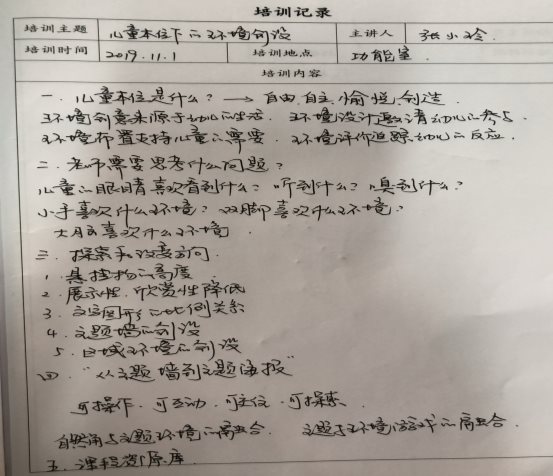 培训记录
培训主题 儿童本位下的环境创设 主讲人 张小玲
培训时间 2019.11.1 培训地点 功能室
培训内容
一、儿童本位是什么？→自由、自主、愉悦、创造
环境创意来源于幼儿的生活、环境设计邀请幼儿的参与
环境布置支持儿童的需要、环境评价追踪幼儿的反应
二、老师需要思考什么问题？
儿童的眼睛喜欢看到什么？听到什么？嗅到什么？
小手喜欢什么环境？双脚喜欢什么环境？
大脑喜欢什么环境
三、探索和改变方向
1. 悬挂物的高度
2. 展示性、欣赏性降低
3. 文字图形的比例关系
4. 主题墙的创设
5. 区域环境的创设
四、"从主题墙到主题海报"
可操作、可互动、可主位、可探索
自然角与主题环境的离散合、主题与环境游戏的离散合
五、课程资源库